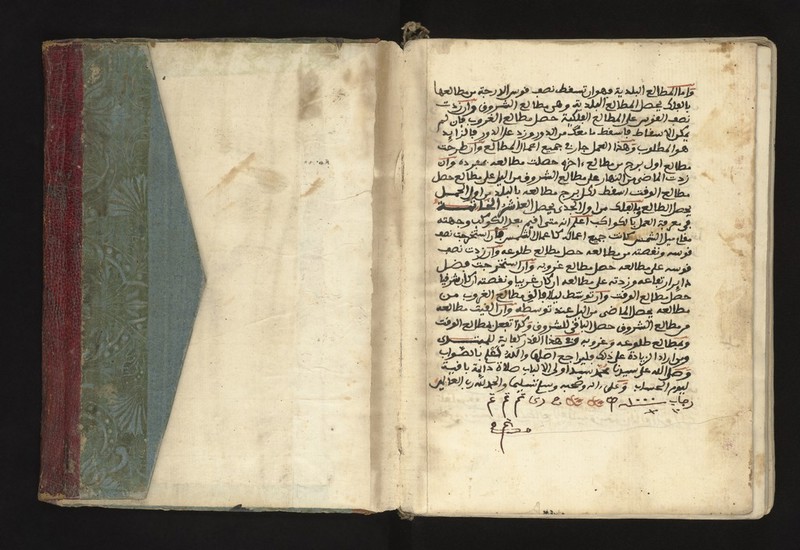 واما المطالع البلدية فهو ان تسقط نصف قوس الدرجة من مطالعها
بالفلك يحصل المطالع البلدية وهي مطالع الشروق وان زدت
نصف القوس على المطالع الفلكية حصل مطالع الغروب فان لم
يمكن الاسقاط فاسقط ما معك من الدور وزد على الدور فالزايد
هو المطلوب وهذا العمل جار في جميع اعمال المطالع وان طرحت
مطالع اول برج من مطالع اخره حصلت مطالعه بمفرده وان
زدت الماضي من النهار على مطالع الشروق ومن الليل على مطالع حصل
مطالع الوقت اسقط لكل برج مطالعه بالبلد من اول الحمل
يحصل الطالع وبالفلك من اول الجدي يحصل العاشر الخاتمة
في معرفة العمل بالكواكب اعلم انه متى اقيم بعد الكوكب وجهته
مقام ميل الشمس كانت جميع اعماله كاعمال الشمس فان استخرجت نصف
قوسه ونقصته من مطالعه حصل مطالع طلوعه وان زدت نصف
قوسه على مطالعه حصل مطالع غروبه وان استخرجت فضل
داير ارتفاعه وزدته على مطالعه ان كان غربيا ونقصته ان كان شرقيا
حصل مطالع الوقت وان توسط ليلا فالق مطالع الغروب من
مطالعه يحصل الماضي من الليل عند توسطه وان القيت مطالعه
من مطالع الشروق حصل الباقي للشروق وكذا تفعل بمطالع الوقت
وبمطالع طلوعه وغروبه وفي هذا القدر كفاية للمبتدي
ومن اراد الزيادة على ذلك فليراجع اصلها والله اعلم بالصواب
وصلى الله على سيدنا محمد سيد اولي الالباب صلاة دايمة باقية
ليوم الحساب وعلى اله وصحبه وسلم تسليما والحمد لله رب العالمين
تم تم تم